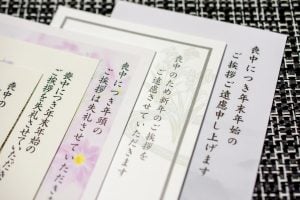 喪中につき年末年始の
ご挨拶ご遠慮申し上げます
喪中のため新年のご挨拶を
失礼させていただきます
喪中につき年頭の
ご挨拶は失礼させていただき
喪中につき年末年始の
ご挨拶を失礼させていただき